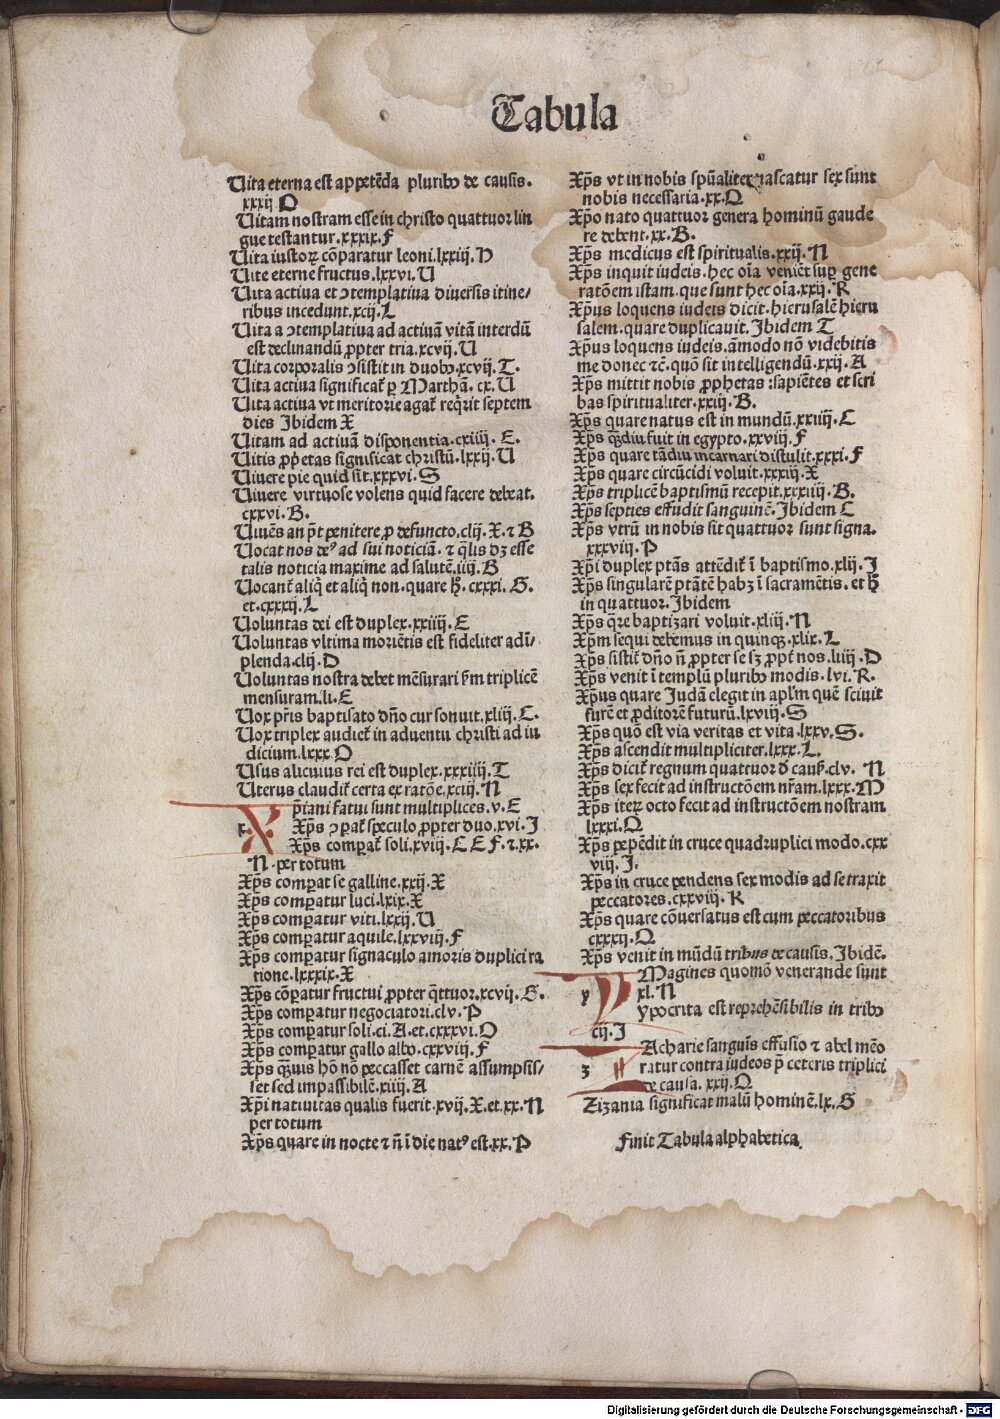 Tabula
Uita eterna est appetēda pluribꝰ de causis.
xxxij O
Uitam nostram esse in christo quattuor lin
gue testantur.xxxix.F
Uita iustoꝝ cōparatur leoni.lxxiij.H
Uite eterne fructus.lxxvi.U
Uita actiua et ↄtemplatiua diuersis itine/
ribus incedunt.xcij.L
Uita a ↄtemplatiua ad actiuā vitā interdū
est declinandū ꝓpter tria.xcvij.U
Uita corporalis ↄsistit in duobꝰ.xcvij.T.
Uita actiua significat̄ ꝑ Marthā. cx.U
Uita actiua vt meritorie agat̄ reqͥrit septem
dies Ibidem X
Uitam ad actiuā disponentia.cxiiij. E.
Uitis ꝓphetas significat christū.lxxij.U
Uiuere pie quid sit.xxxvi.S
Uiuere virtuose volens quid facere debeat.
cxxvi.B.
Uiuēs an p̄t penitere ꝓ defuncto.clij.X.⁊ B
Uocat nos deꝰ ad sui noticiā. ⁊ qͣlis dꝫ esse
talis noticia maxime ad salutē.iiij.B
Uocant̄ aliqͥ et aliqͥ non.quare h̄.cxxxi.G.
et.cxxxij.L
Uoluntas dei est duplex.xxiiij.E
Uoluntas vltima moriētis est fideliter adī/
plenda.clij.D
Uoluntas nostra debet mēsurari ẜm triplicē
mensuram.li.E
Uox pr̄is baptisato dn̄o cur sonuit.xliij.C.
Uox triplex audiet̄ in aduentu christi ad iu
dicium.lxxx.O
Usus alicuius rei est duplex.xxxiiij.T
Uterus claudit̄ certa ex ratōe.xciij.N
x. Xp̄iani fatui sunt multiplices.v.E
Xp̄s ↄꝑat̄ speculo ꝓpter duo.xvi.I
Xp̄s comꝑat̄ soli.xviij.C E F.⁊.xx.
N.per totum
Xp̄s comꝑat se galline.xxij.X
Xp̄s comꝑatur luci.lxix.X
Xp̄s comꝑatur viti.lxxij.U
Xp̄s comꝑatur aquile.lxxviij.F
Xp̄s comꝑatur signaculo amoris duplici ra
tione.lxxxix.X
Xp̄s cōꝑatur fructui ꝓpter qͣttuor.xcvij.G.
Xp̄s comꝑatur negociatori.clv.P
Xp̄s comꝑatur soli.ci.A.et.cxxxvi.O
Xp̄s comꝑatur gallo albo.cxxviij.F
Xp̄s qͣuis hō nō peccasset carnē assumpsis/
set sed impassibilē.xiiij.A
Xp̄i natiuitas qualis fuerit.xvij.X.et.xx.N
per totum
Xp̄s quare in nocte ⁊ n̄ ī die natꝰ est.xx.P
Xp̄s vt in nobis spūaliter nascatur sex sunt
nobis necessaria.xx.Q
Xp̄o nato quattuor genera hominū gaude
re debent.xx.B.
Xp̄s medicus est spiritualis.xxij.N
Xp̄s inquit iudeis.hec oīa veniēt suꝑ gene
ratōem istam.que sunt hec oīa.xxij.R
Xp̄us loquens iudeis dicit.hierusalē hieru
salem.quare duplicauit.Ibidem T
Xp̄us loquens iudeis.āmodo nō videbitis
me donec ⁊c̄.quō sit intelligendū.xxij.A
Xp̄s mittit nobis ꝓphetas:sapiētes et scri
bas spiritualiter.xxiij.B.
Xp̄s quare natus est in mundū.xxiiij.C
Xp̄s qͣdiu fuit in egypto.xxviij.F
Xp̄s quare tādiu incarnari distulit.xxxi.F
Xp̄s quare circūcidi voluit.xxxiij.X
Xp̄s triplicē baptismū recepit.xxxiiij.B.
Xp̄s septies effudit sanguinē.Ibidem C
Xp̄s vtrū in nobis sit quattuor sunt signa.
xxxviij.P
Xp̄i duplex ptās attēdit̄ ī baptismo.xlij.I
Xp̄s singularē ptātē habꝫ ī sacramētis.et h̄
in quattuor.Ibidem
Xp̄s qͣre baptizari voluit.xliij.N
Xp̄m sequi debemus in quinqꝫ.xlix.L
Xp̄s sistit̄ dn̄o n̄ ꝓpter se sꝫ ꝓpt̄ nos.liiij.D
Xp̄s venit ī templū pluribꝰ modis.lvi.R.
Xp̄us quare Judā elegit in apl̄m quē sciuit
furē et ꝓditorē futurū.lxviij.S
Xp̄s quō est via veritas et vita.lxxv.S.
Xp̄s ascendit multipliciter.lxxx.L.
Xp̄s dicit̄ regnum quattuor ð cauẜ.clv. N
Xp̄s sex fecit ad instructōem nr̄am.lxxx.M
Xp̄s iteꝝ octo fecit ad instructōem nostram
lxxxi.Q
Xp̄s pepēdit in cruce quadruplici modo.cxx
viij.I.
Xp̄s in cruce pendens sex modis ad se traxit
peccatores.cxxviij.K
Xp̄s quare cōuersatus est cum peccatoribus
cxxxij.Q
Xp̄s venit in mūdū tribus de causis.Ibidē.
y Ymagines quomō venerande sunt
xl.N
ypocrita est reprehēsibilis in tribꝰ
cij.I
z Zacharie sanguis effusio ⁊ abel mēo
ratur contra iudeos p̄ ceteris triplici
de causa.xxij.Q
Zizania significat malū hominē.lx.G
Finit Tabula alphabetica.
Digitalisierung gefördert durch die Deutsche Forschungsgemeinschaft - DFG